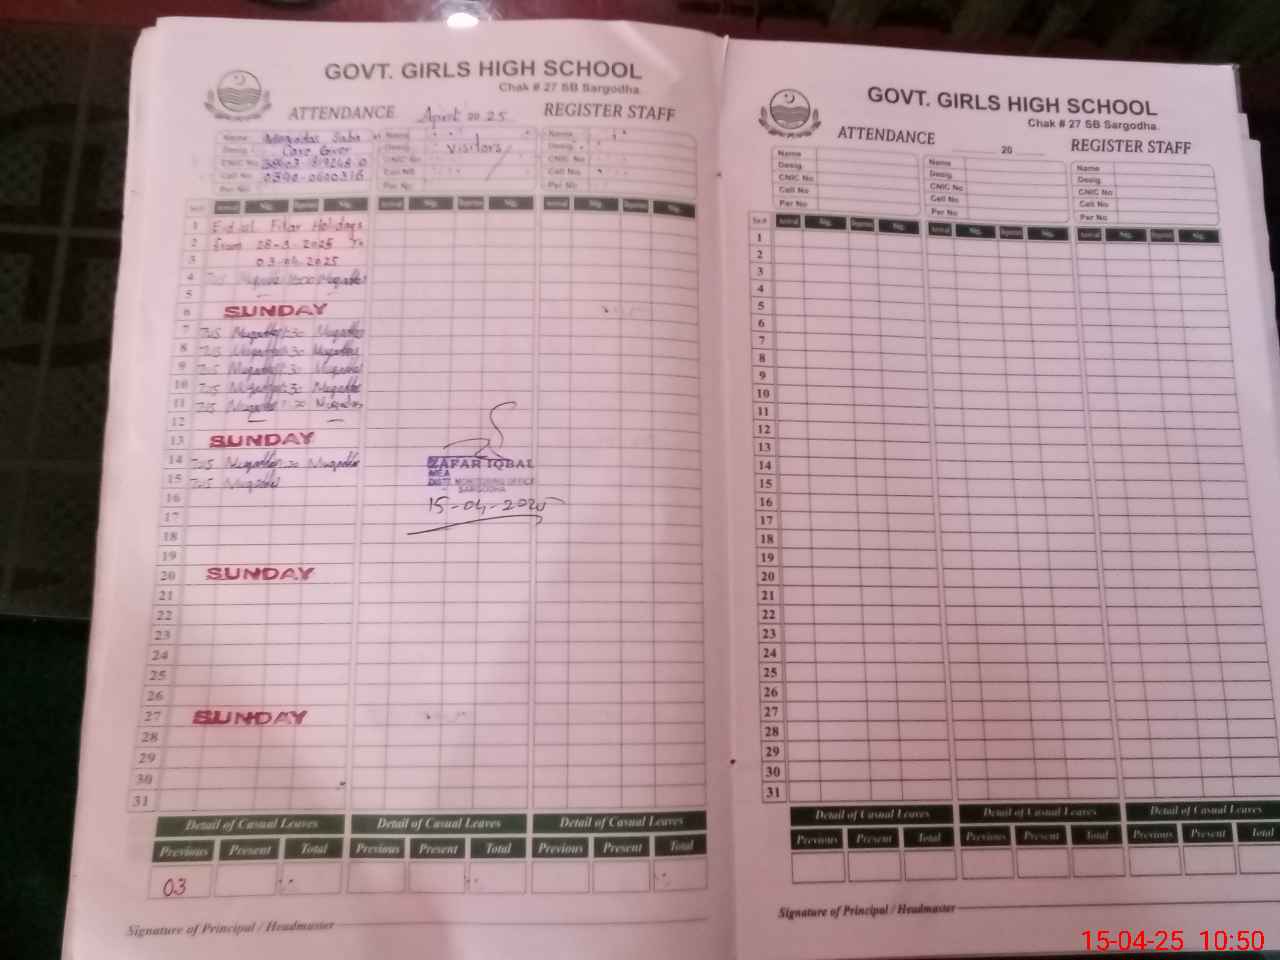 GOVT. GIRLS HIGH SCHOOL
Chak # 27 SB Sargodha.
ATTENDANCE April 2025 REGISTER STAFF
Name Saba Name Name
Desig. Care Giver Desig. Visitors Desig.
CNIC No CNIC No CNIC No
Cell No Cell No Cell No
Per No Per No Per No
Arrival Sig. Departure Sig. Arrival Sig. Departure Sig. Arrival Sig. Departure Sig.
1 Eid ul Fitar Holidays
2 from 28-3-2025 To
3 03-04-2025
4
5
6 SUNDAY
7 7:45
8 7:45
9 7:45
10 7:45
11 7:45
12
13 SUNDAY
14 7:45
15 7:45
ZAFAR IQBAL
MEA
DISTT. MONITORING OFFICE
SARGODHA
15-04-2025
16
17
18
19
20 SUNDAY
21
22
23
24
25
26
27 SUNDAY
28
29
30
31
Detail of Casual Leaves Detail of Casual Leaves Detail of Casual Leaves
Previous Present Total Previous Present Total Previous Present Total
03
Signature of Principal / Headmaster
GOVT. GIRLS HIGH SCHOOL
Chak # 27 SB Sargodha.
ATTENDANCE 20 REGISTER STAFF
Name Name Name
Desig. Desig. Desig.
CNIC No CNIC No CNIC No
Cell No Cell No Cell No
Per No Per No Per No
Sr.# Arrival Sig. Departure Sig. Arrival Sig. Departure Sig. Arrival Sig. Departure Sig.
1
2
3
4
5
6
7
8
9
10
11
12
13
14
15
16
17
18
19
20
21
22
23
24
25
26
27
28
29
30
31
Detail of Casual Leaves Detail of Casual Leaves Detail of Casual Leaves
Previous Present Total Previous Present Total Previous Present Total
Signature of Principal / Headmaster
15-04-25 10:50